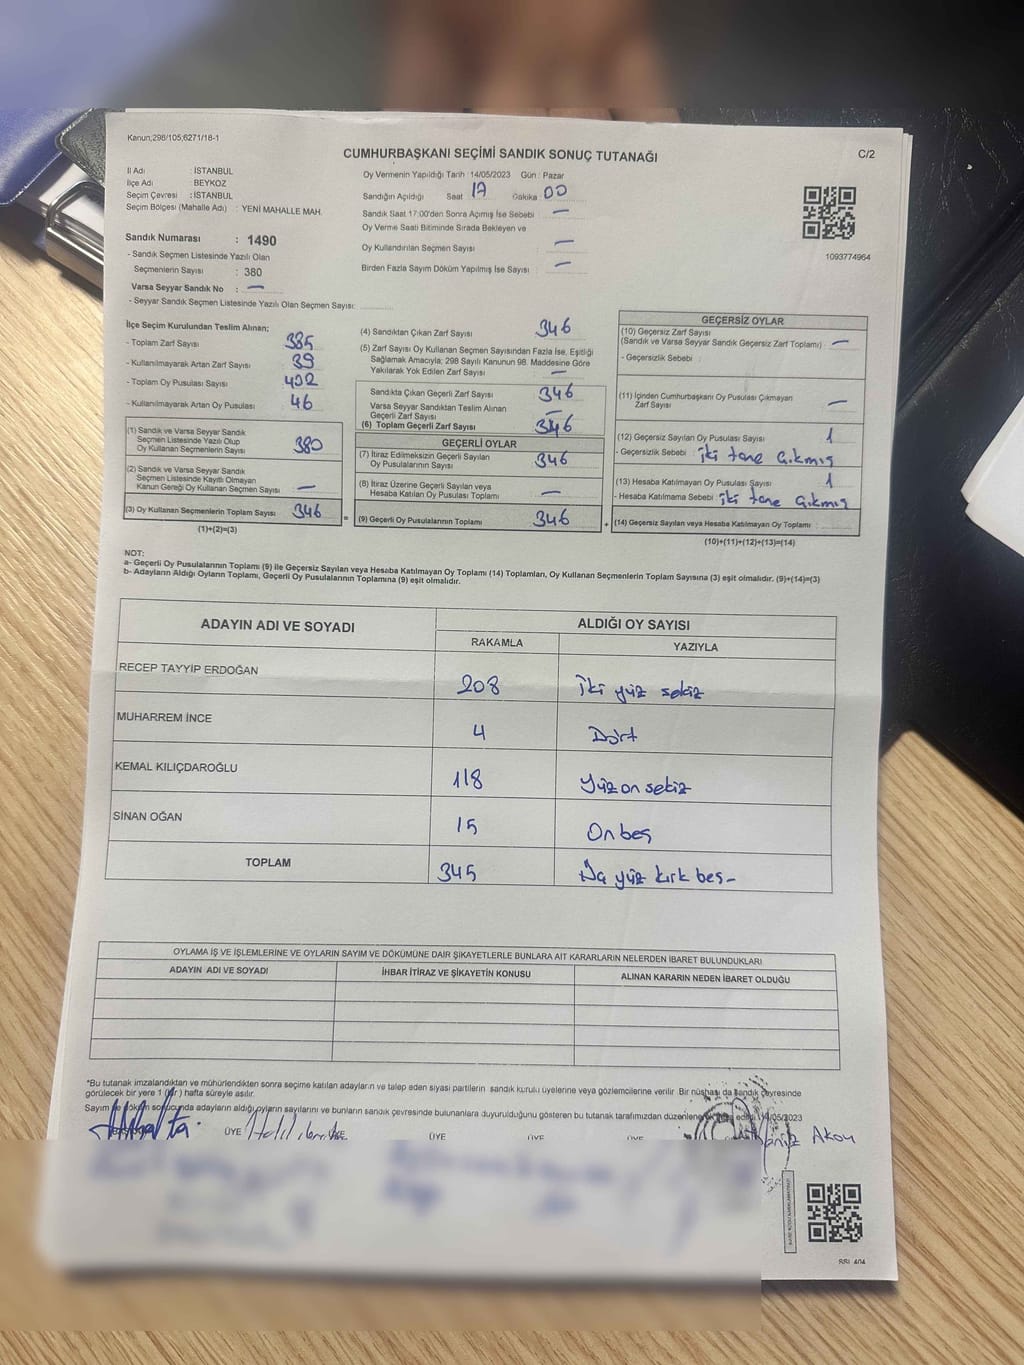 Kanun;298/105;6271/18-1
CUMHURBAŞKANI SEÇİMİ SANDIK SONUÇ TUTANAĞI
C/2
İl Adı : İSTANBUL
İlçe Adı : BEYKOZ
Seçim Çevresi : İSTANBUL
Seçim Bölgesi (Mahalle Adı) : YENİ MAHALLE MAH.
Sandık Numarası : 1490
- Sandık Seçmen Listesinde Yazılı Olan
Seçmenlerin Sayısı : 380
Varsa Seyyar Sandık No : —
- Seyyar Sandık Seçmen Listesinde Yazılı Olan Seçmen Sayısı:
Oy Vermenin Yapıldığı Tarih :14/05/2023 Gün : Pazar
Sandığın Açıldığı Saat 17 Dakika 00
Sandık Saat 17:00'den Sonra Açılmış İse Sebebi —
Oy Verme Saati Bitiminde Sırada Bekleyen ve
Oy Kullandırılan Seçmen Sayısı —
Birden Fazla Sayım Döküm Yapılmış İse Sayısı —
1093774964
İlçe Seçim Kurulundan Teslim Alınan;
- Toplam Zarf Sayısı 385
- Kullanılmayarak Artan Zarf Sayısı 39
- Toplam Oy Pusulası Sayısı
- Kullanılmayarak Artan Oy Pusulası 46
(1) Sandık ve Varsa Seyyar Sandık
Seçmen Listesinde Yazılı Olup
Oy Kullanan Seçmenlerin Sayısı 380
(2) Sandık ve Varsa Seyyar Sandık
Seçmen Listesinde Kayıtlı Olmayan
Kanun Gereği Oy Kullanan Seçmen Sayısı —
(3) Oy Kullanan Seçmenlerin Toplam Sayısı 346
(1)+(2)=(3)
(4) Sandıktan Çıkan Zarf Sayısı 346
(5) Zarf Sayısı Oy Kullanan Seçmen Sayısından Fazla İse, Eşitliği
Sağlamak Amacıyla; 298 Sayılı Kanunun 98. Maddesine Göre
Yakılarak Yok Edilen Zarf Sayısı —
Sandıkta Çıkan Geçerli Zarf Sayısı 346
Varsa Seyyar Sandıktan Teslim Alınan
Geçerli Zarf Sayısı —
(6) Toplam Geçerli Zarf Sayısı 346
GEÇERLİ OYLAR
(7) İtiraz Edilmeksizin Geçerli Sayılan
Oy Pusulalarının Sayısı 346
(8) İtiraz Üzerine Geçerli Sayılan veya
Hesaba Katılan Oy Pusulası Toplamı —
= (9) Geçerli Oy Pusulalarının Toplamı 346
GEÇERSİZ OYLAR
(10) Geçersiz Zarf Sayısı
(Sandık ve Varsa Seyyar Sandık Geçersiz Zarf Toplamı) —
- Geçersizlik Sebebi :
(11) İçinden Cumhurbaşkanı Oy Pusulası Çıkmayan
Zarf Sayısı —
(12) Geçersiz Sayılan Oy Pusulası Sayısı 1
- Geçersizlik Sebebi : iki tane çıkmış
(13) Hesaba Katılmayan Oy Pusulası Sayısı 1
- Hesaba Katılmama Sebebi : iki tane çıkmış
+ (14) Geçersiz Sayılan veya Hesaba Katılmayan Oy Toplamı :
(10)+(11)+(12)+(13)=(14)
NOT:
a- Geçerli Oy Pusulalarının Toplamı (9) ile Geçersiz Sayılan veya Hesaba Katılmayan Oy Toplamı (14) Toplamları, Oy Kullanan Seçmenlerin Toplam Sayısına (3) eşit olmalıdır. (9)+(14)=(3)
b- Adayların Aldığı Oyların Toplamı, Geçerli Oy Pusulalarının Toplamına (9) eşit olmalıdır.
ADAYIN ADI VE SOYADI
ALDIĞI OY SAYISI
RAKAMLA YAZIYLA
RECEP TAYYİP ERDOĞAN 208 İki yüz sekiz
MUHARREM İNCE 4 Dört
KEMAL KILIÇDAROĞLU 118 Yüz on sekiz
SİNAN OĞAN 15 On beş
TOPLAM 345 Üç yüz kırk beş-
OYLAMA İŞ VE İŞLEMLERİNE VE OYLARIN SAYIM VE DÖKÜMÜNE DAİR ŞİKAYETLERLE BUNLARA AİT KARARLARIN NELERDEN İBARET BULUNDUKLARI
ADAYIN ADI VE SOYADI İHBAR İTİRAZ VE ŞİKAYETİN KONUSU ALINAN KARARIN NEDEN İBARET OLDUĞU
*Bu tutanak imzalandıktan ve mühürlendikten sonra seçime katılan adayların ve talep eden siyasi partilerin sandık kurulu üyelerine veya gözlemcilerine verilir Bir nüshası da sandık çevresinde
görülecek bir yere 1 (bir) hafta süreyle asılır.
Sayım ve döküm sonucunda adayların aldığı oyların sayılarını ve bunların sandık çevresinde bulunanlara duyurulduğunu gösteren bu tutanak tarafımızdan düzenlenerek edildi 14/05/2023
ÜYE ÜYE ÜYE ÜYE ÜYE